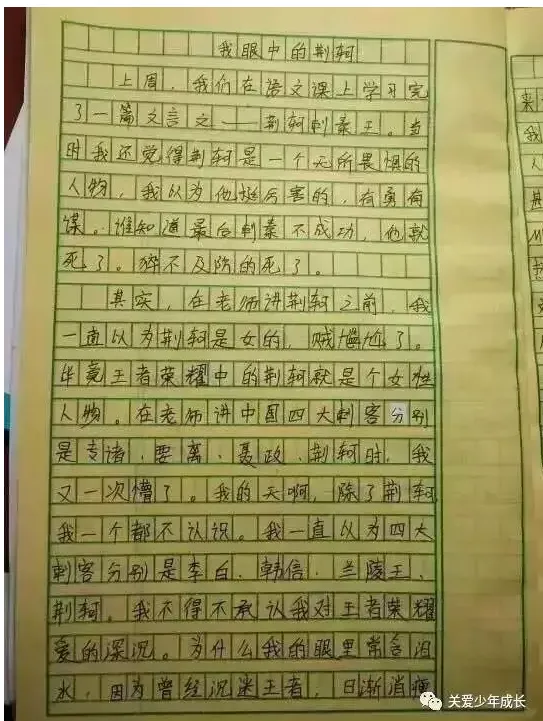 我眼中的荆轲
上周，我们在语文课上学习完
了一篇文言之——荆轲刺秦王。当
时我还觉得荆轲是一个无所畏惧的
人物，我以为他挺厉害的，有勇有
谋。谁知道最后刺秦不成功，他就
死了。猝不及防的死了。
其实，在老师讲荆轲之前，我
一直以为荆轲是女的，贼尴尬了。
毕竟王者荣耀中的荆轲就是个女性
人物。在老师讲中国四大刺客分别
是专诸、要离、聂政、荆轲时，我
又一次懵了。我的天啊，除了荆轲
我一个都不认识。我一直以为四大
刺客分别是李白、韩信、兰陵王、
荆轲。我不得不承认我对王者荣耀
爱的深沉。为什么我的眼里常含泪
水，因为曾经沉迷王者，日渐消瘦
来
我
人
甚
关爱少年成长